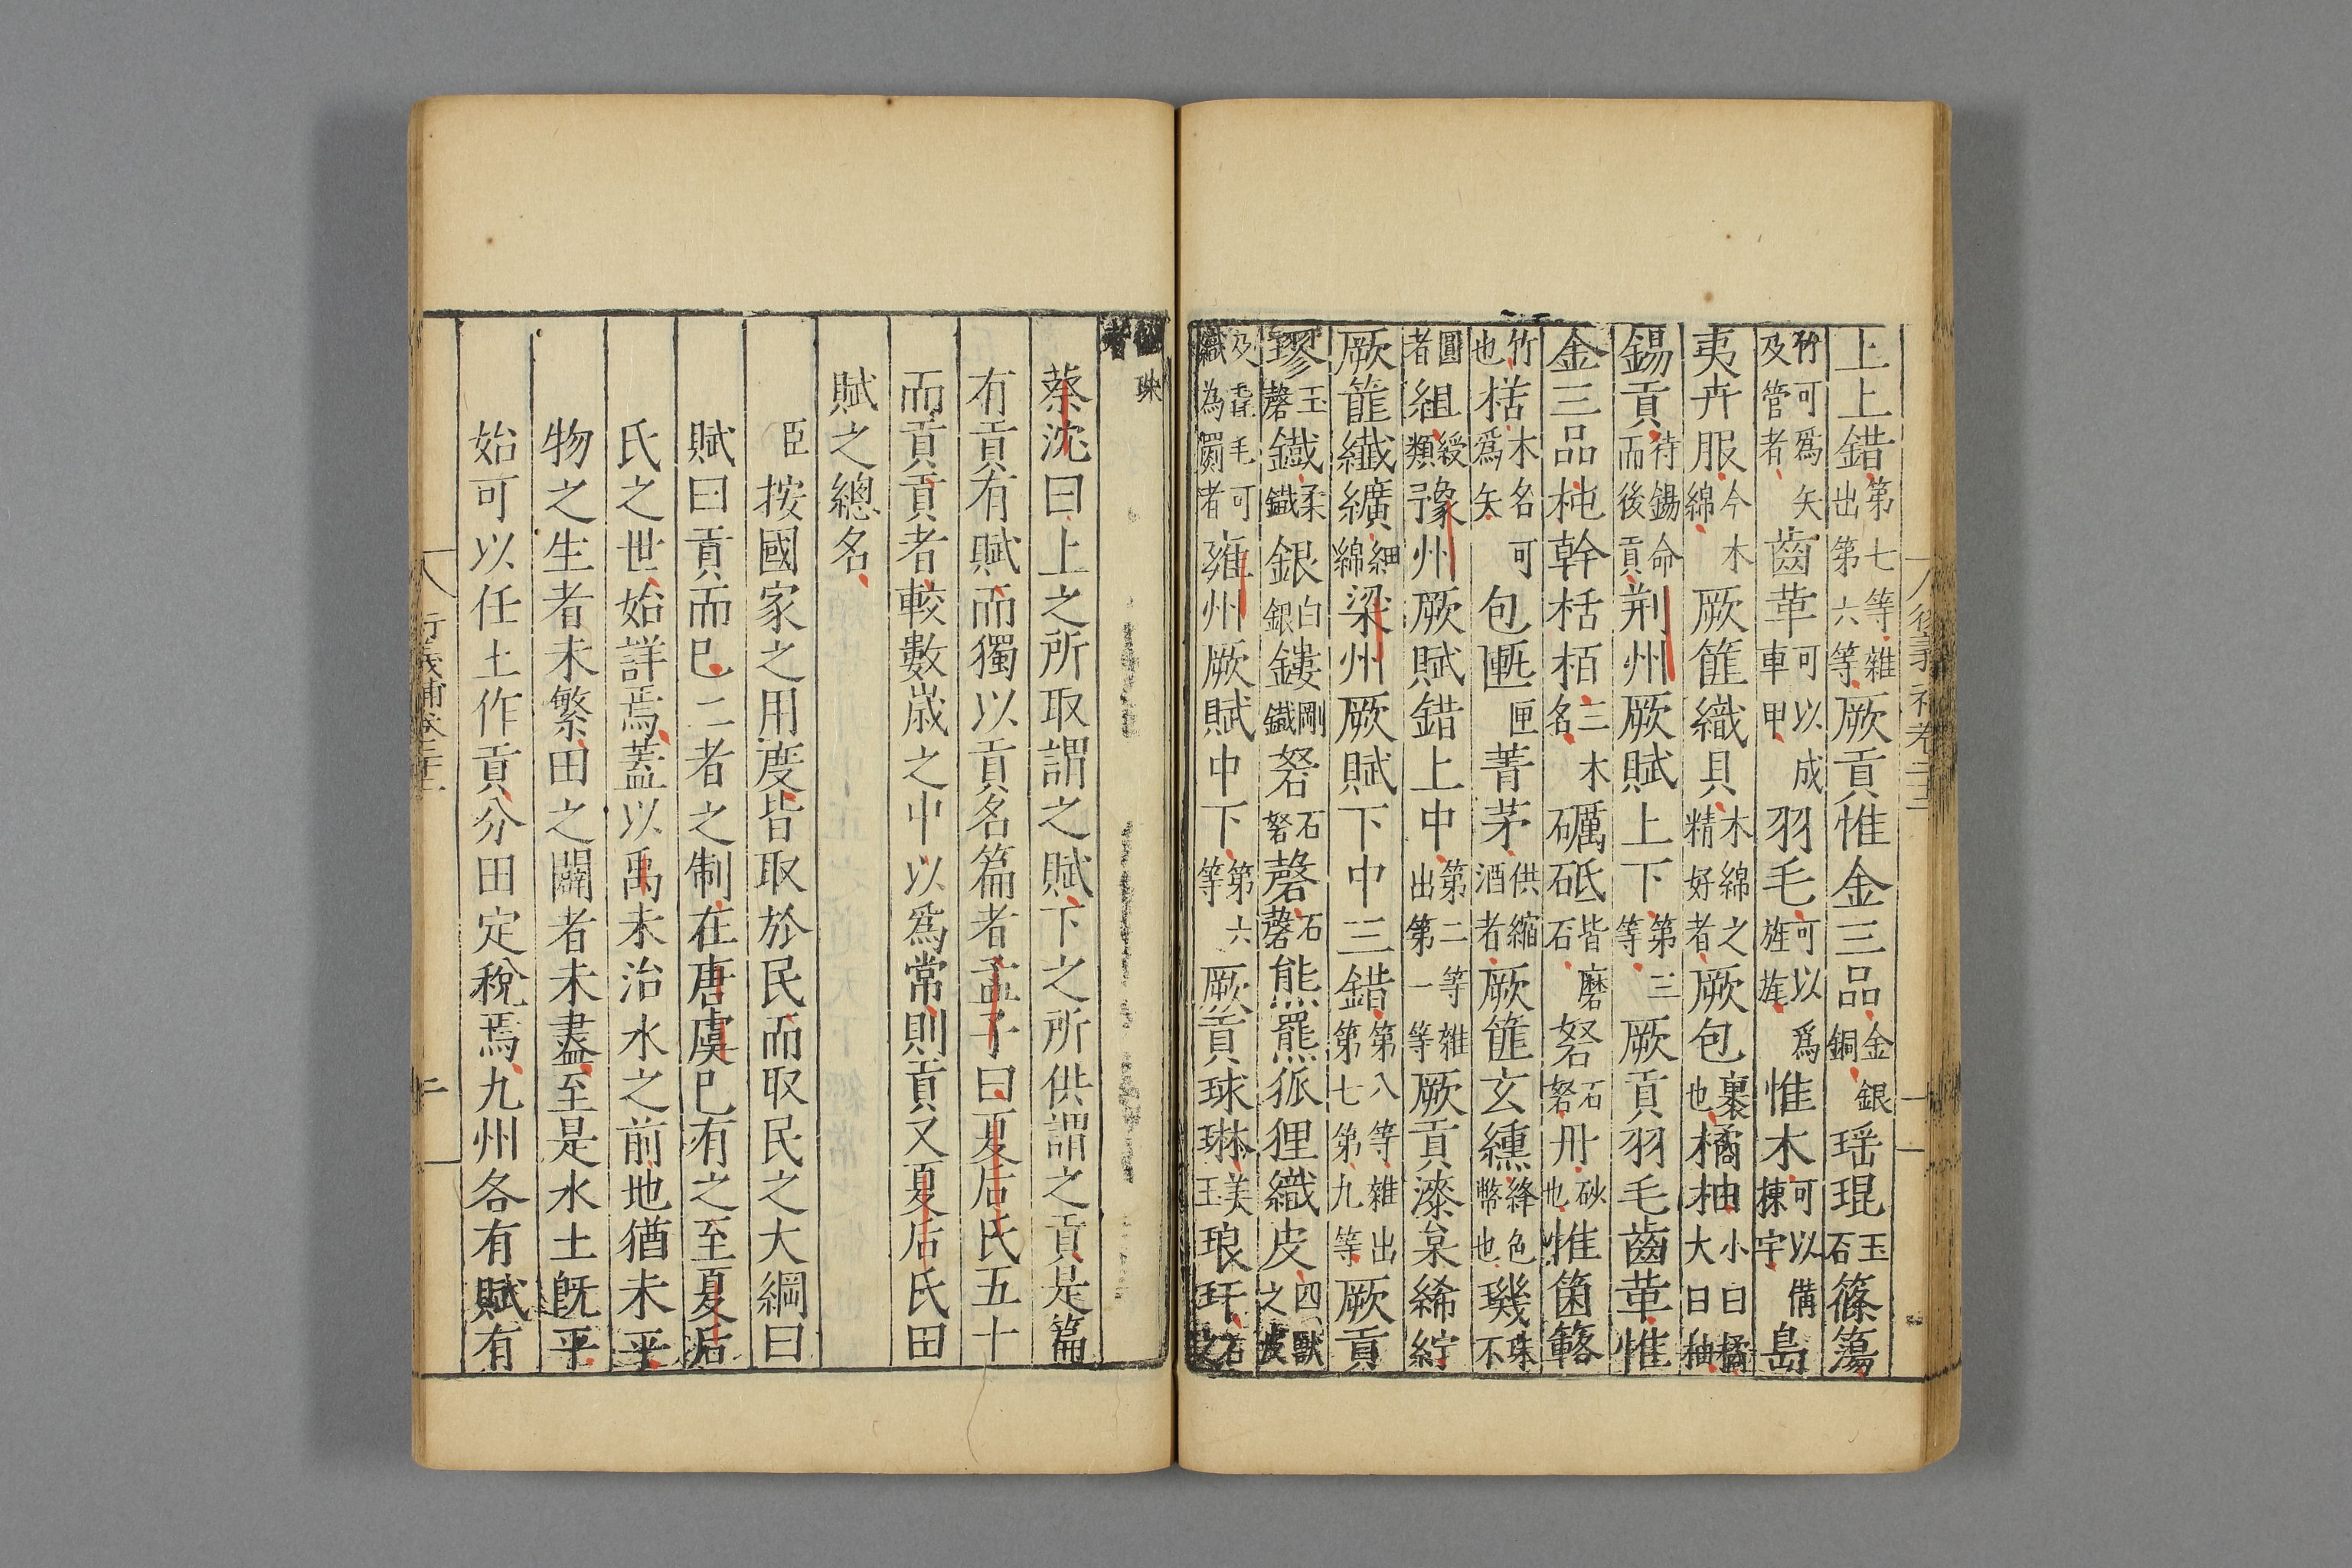 上上錯第七等雜出第六等厥貢惟金三品金銀銅瑶琨玉石篠簜
竹可爲矢及管者齒革可以成車甲羽毛可以爲旌旄惟木可以備棟宇島
夷卉服今木綿厥篚織貝木綿之精好者厥包裹也橘柚小曰橘大曰柚
錫貢待錫命而後貢荆州厥賦上下第三等厥貢羽毛齒革惟
金三品杶幹栝栢三木名礪砥皆磨石砮石砮丹砂也惟箘簵
竹也楛木名可爲矢包匭匣菁茅供縮酒者厥篚玄纁絳色幣也璣珠不
圓者組綬類豫州厥賦錯上中第二等雜出第一等厥貢漆枲絺紵
厥篚纖纊細綿梁州厥賦下中三錯第八等雜出第七第九等厥貢
璆玉磬鐵柔鐵銀白銀鏤剛鐵砮石砮磬石磬熊羆狐狸織皮四獸之皮
及毳毛可織為罽者雍州厥賦中下第六等厥貢球琳美玉琅玕石之
珠
蔡沈曰上之所取謂之賦下之所供謂之貢是篇
有貢有賦而獨以貢名篇者孟子曰夏后氏五十
而貢貢者較數歲之中以爲常則貢又夏后氏田
賦之總名
臣按國家之用度皆取於民而取民之大綱曰
賦曰貢而已二者之制在唐虞已有之至夏后
氏之世始詳焉蓋以禹未治水之前地猶未平
物之生者未繁田之闢者未盡至是水土旣平
始可以任土作貢分田定稅焉九州各有賦有